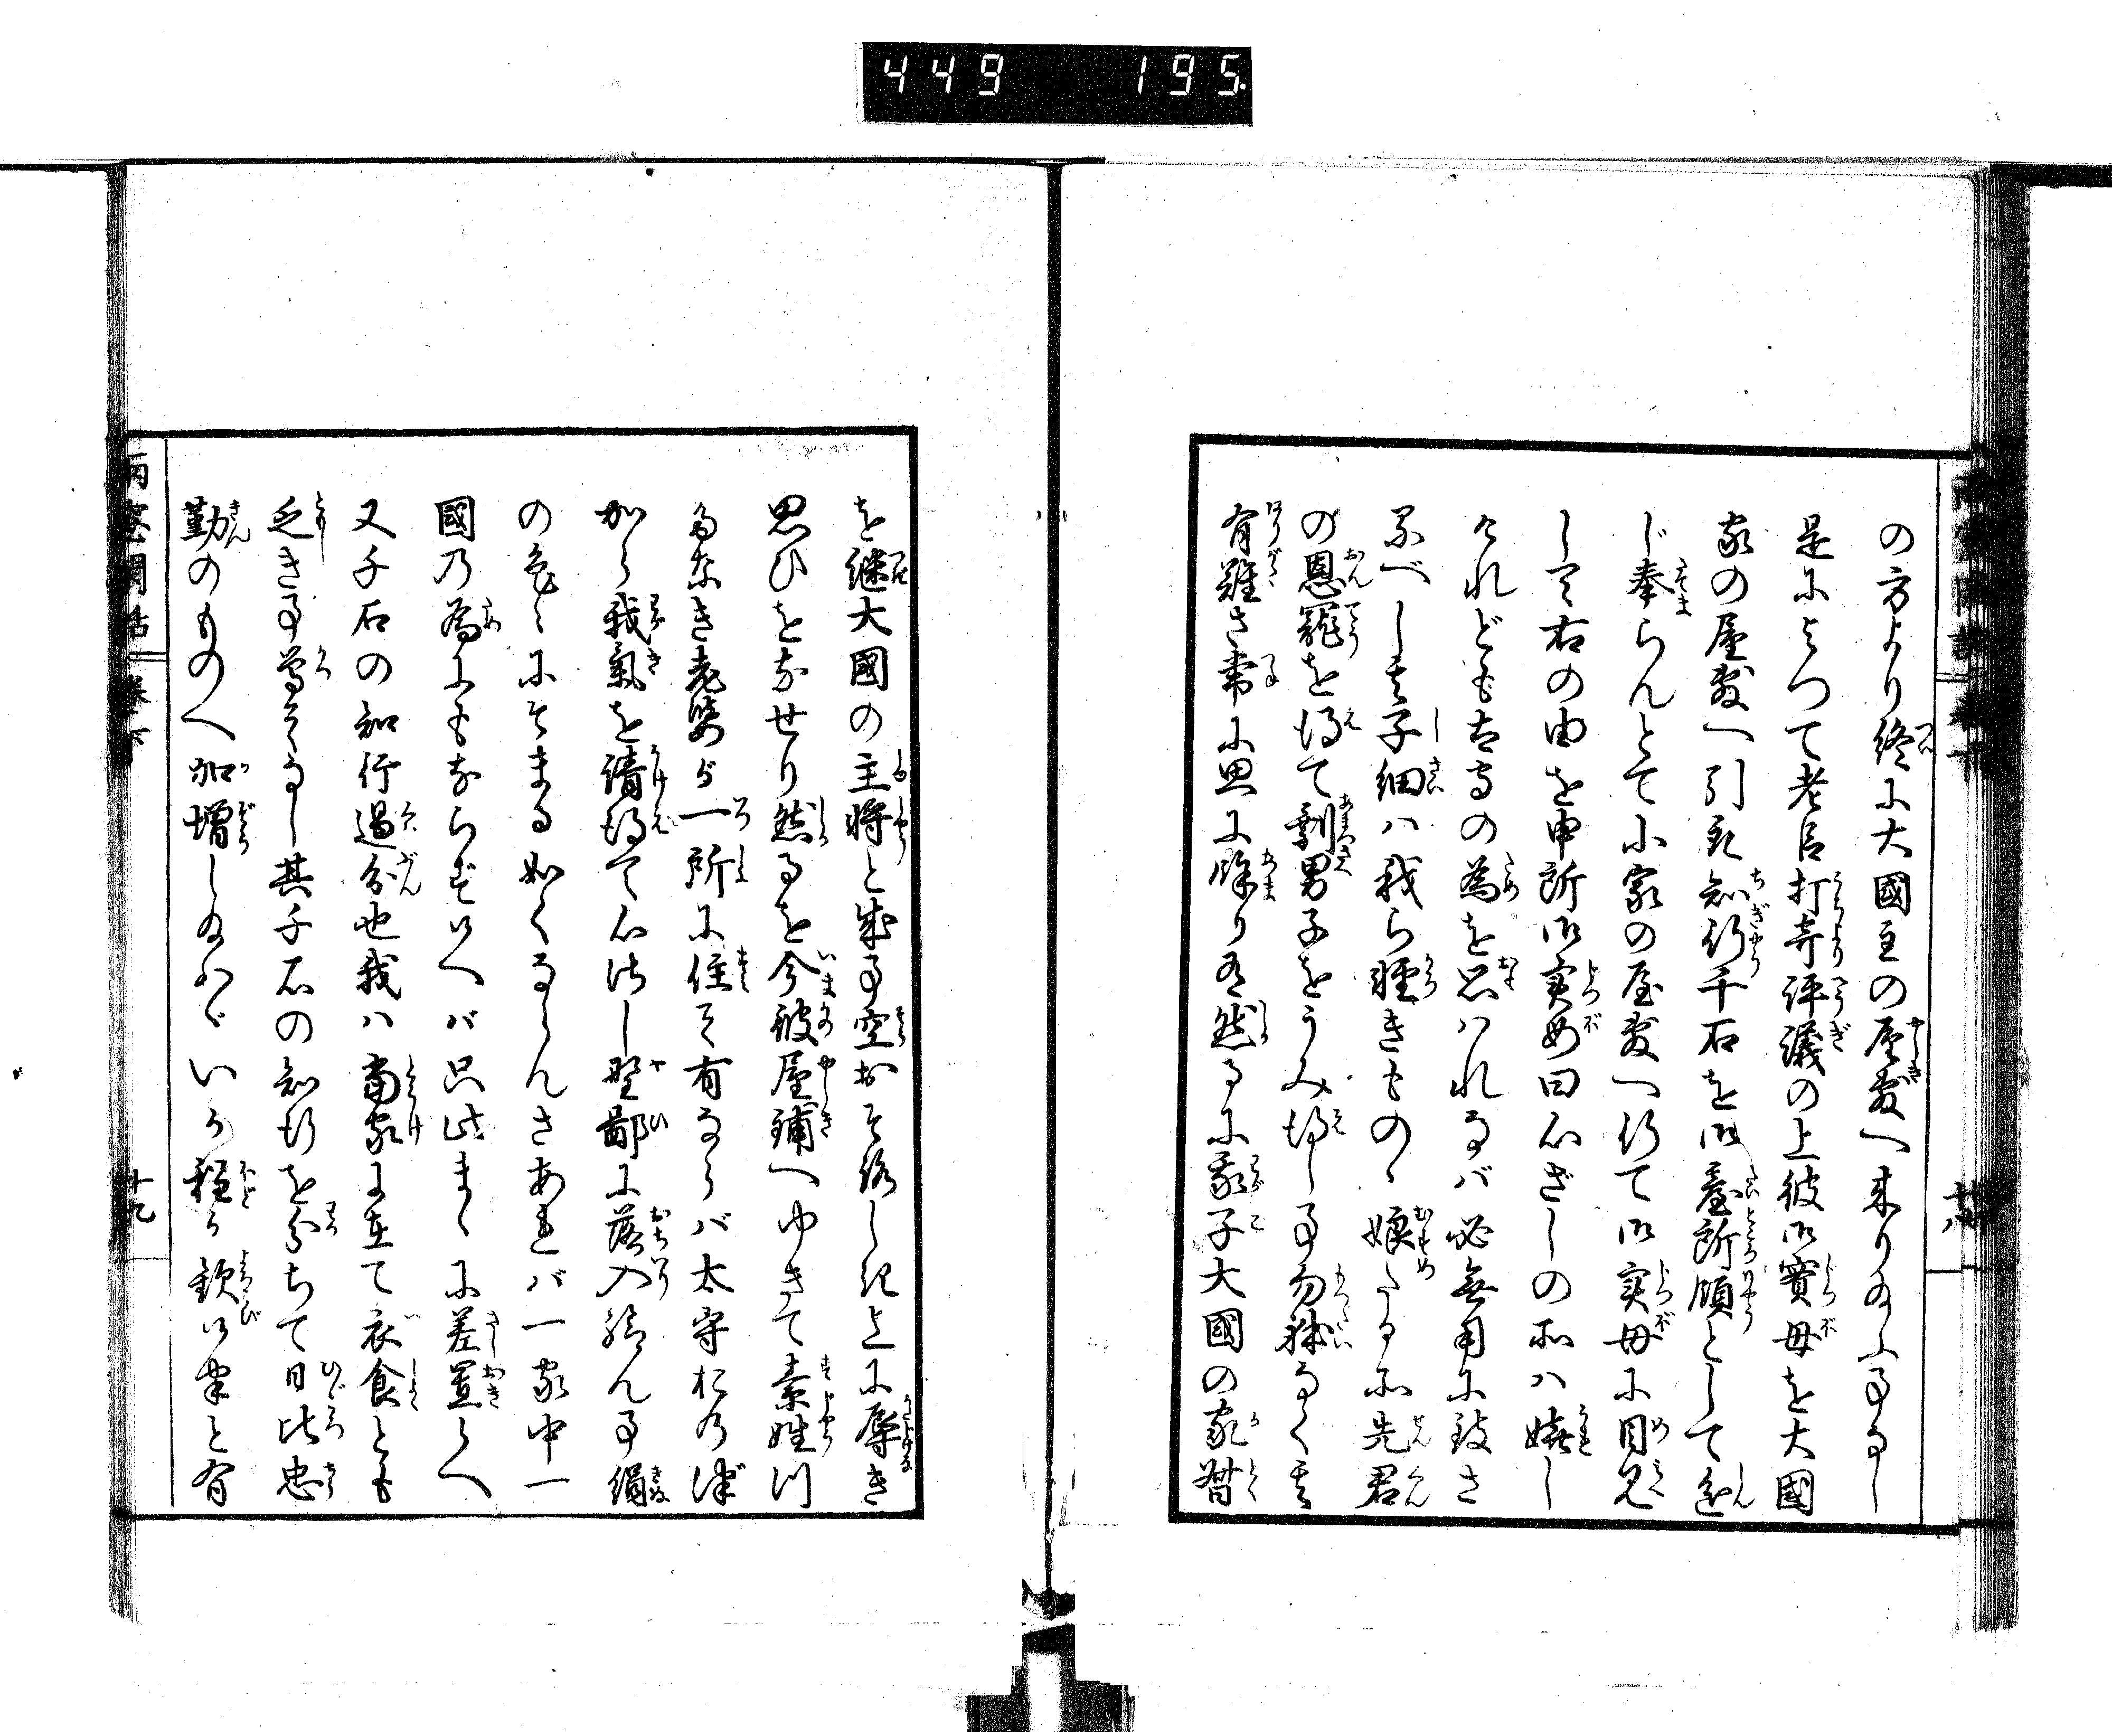 449 195
の方より終に大國主の屋敷へ来り給ふ事なし
是によつて老臣打寄評議の上彼御實母を大國
家の屋敷へ引取知行千石を御臺所領として進
じ奉らんとて小家の屋敷へ行て御実母に目見
して右の由を申所御実母曰心ざしの所ハ嬉し
けれども太守の為を思ハれなバ必無用に致さ
るべし其子細ハ我ら軽きものゝ娘たる所先君
の恩寵を得て剰男子をうみ得し事勿躰なく其
有難さ常に思に餘り有然るに我子大國の家督
十八
を継大國の主将と成事空おそろしき上に辱き
思ひをなせり然るを今彼屋鋪へゆきて素姓
つたなき老婆が一所に住て有ならバ太守おのづ
から我氣を請得て心法し野鄙に落入給ん事絹
の色々にそまる如くならんさあれバ一家中一
國の為にもならずいへバ只此まゝに差置候へ
又千石の知行過分也我ハ當家に在て衣食とも
乏き事曽てなし其千石の知行を分ちて日比忠
勤のものへ加増し給ハゞいか程か歓いはんと有
雨窓閑話 巻下
十九